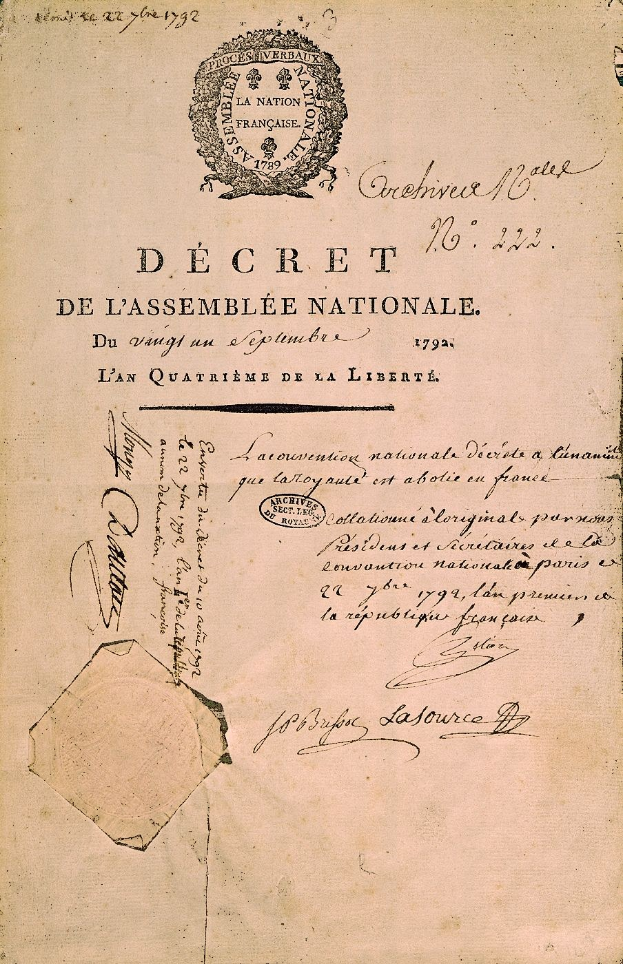 le 22 7bre 1792
PROCÈS VERBAUX
ASSEMBLÉE NATIONALE.
LA NATION
FRANÇAISE.
1789
Archives N.ales
N.° 222.
DÉCRET
DE L'ASSEMBLÉE NATIONALE.
Du vingt un Septembre 1792.
L'AN QUATRIÈME DE LA LIBERTÉ.
La convention nationale décrète a l'unanimité
que la Royauté est abolie en france
ARCHIVES
SECT. LEG.
DU ROYAUME
Collationné à l'original par nous
Président et Secrétaires de la
Convention nationale à paris ce
22 7bre 1792, l'an premier de
la république françoise
JP Brissot Lasource
Envertu du décret du 10 août 1792
le 22 7bre 1792, l'an 1er de la république
au nom de la nation. françoise
Monge
Danton